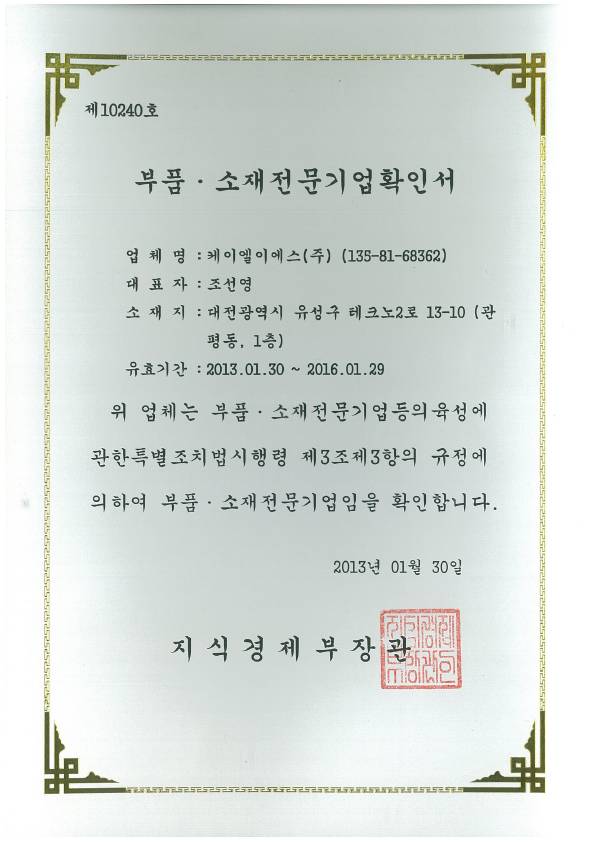 제10240호
부품·소재전문기업확인서
업 체 명 : 케이엘이에스(주) (135-81-68362)
대 표 자 : 조선영
소 재 지 : 대전광역시 유성구 테크노2로 13-10 (관
평동, 1층)
유효기간 : 2013.01.30 ~ 2016.01.29
위 업체는 부품·소재전문기업등의육성에
관한특별조치법시행령 제3조제3항의 규정에
의하여 부품·소재전문기업임을 확인합니다.
2013년 01월 30일
지식경제부장관